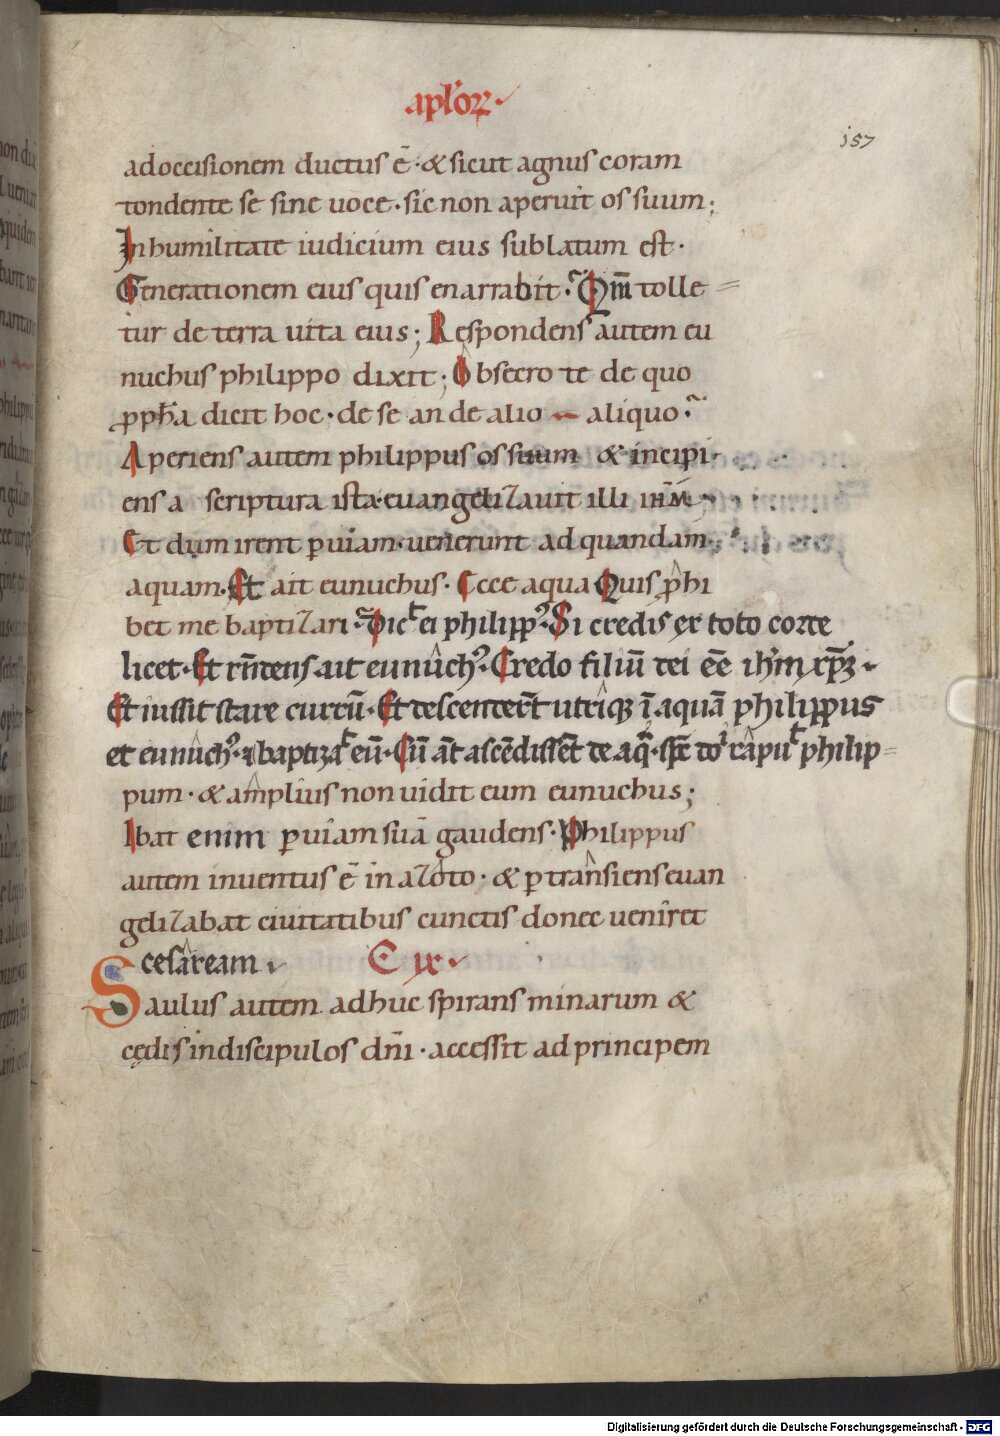 apl'oꝝ
157
ad occisionem ductus ē · & sicut agnus coram
tondente se sine uoce · sic non aperuit os suum ;
In humilitate iudicium eius sublatum est ·
Generationem eius quis enarrabit · Qm̄ tolle=
tur de terra uita eius ; Respondens autem eu
nuchus philippo dixit ; Obsecro te de quo
ꝓpħa dicit hoc · de se an de alio aliquo ·
Aperiens autem philippus os suum & incipi
ens a scriptura ista euangelizauit illi ihm̄ ;
Et dum irent ꝑ uiam · uenerunt ad quandam
aquam · Et ait eunuchus · Ecce aqua Quis ꝓhi
bet me baptizari · Dic̄t ei philipp᷒ · Si credis ex toto corde
licet · Et rn̄dens ait eunuch᷒ · Credo filiū dei eē ihm̄ xpm̄ ·
Et iussit stare currū · Et descender̄t utriqꝫ ī aquā philippus
et eunuch᷒ · & baptizat eū · Cū aūt ascēdissēt de aq̄ · sp̄c do rapu̇t philip=
pum · & amplius non uidit eum eunuchus ;
Ibat enim ꝑ uiam suā gaudens · Philippus
autem inuentus ē in azoto · & ꝑtransiens euan
gelizabat ciuitatibus cunctis donec ueniret
cesaream · C ix
Saulus autem adhuc spirans minarum &
cędis in discipulos dn̄i · accessit ad principem
Digitalisierung gefördert durch die Deutsche Forschungsgemeinschaft - DFG